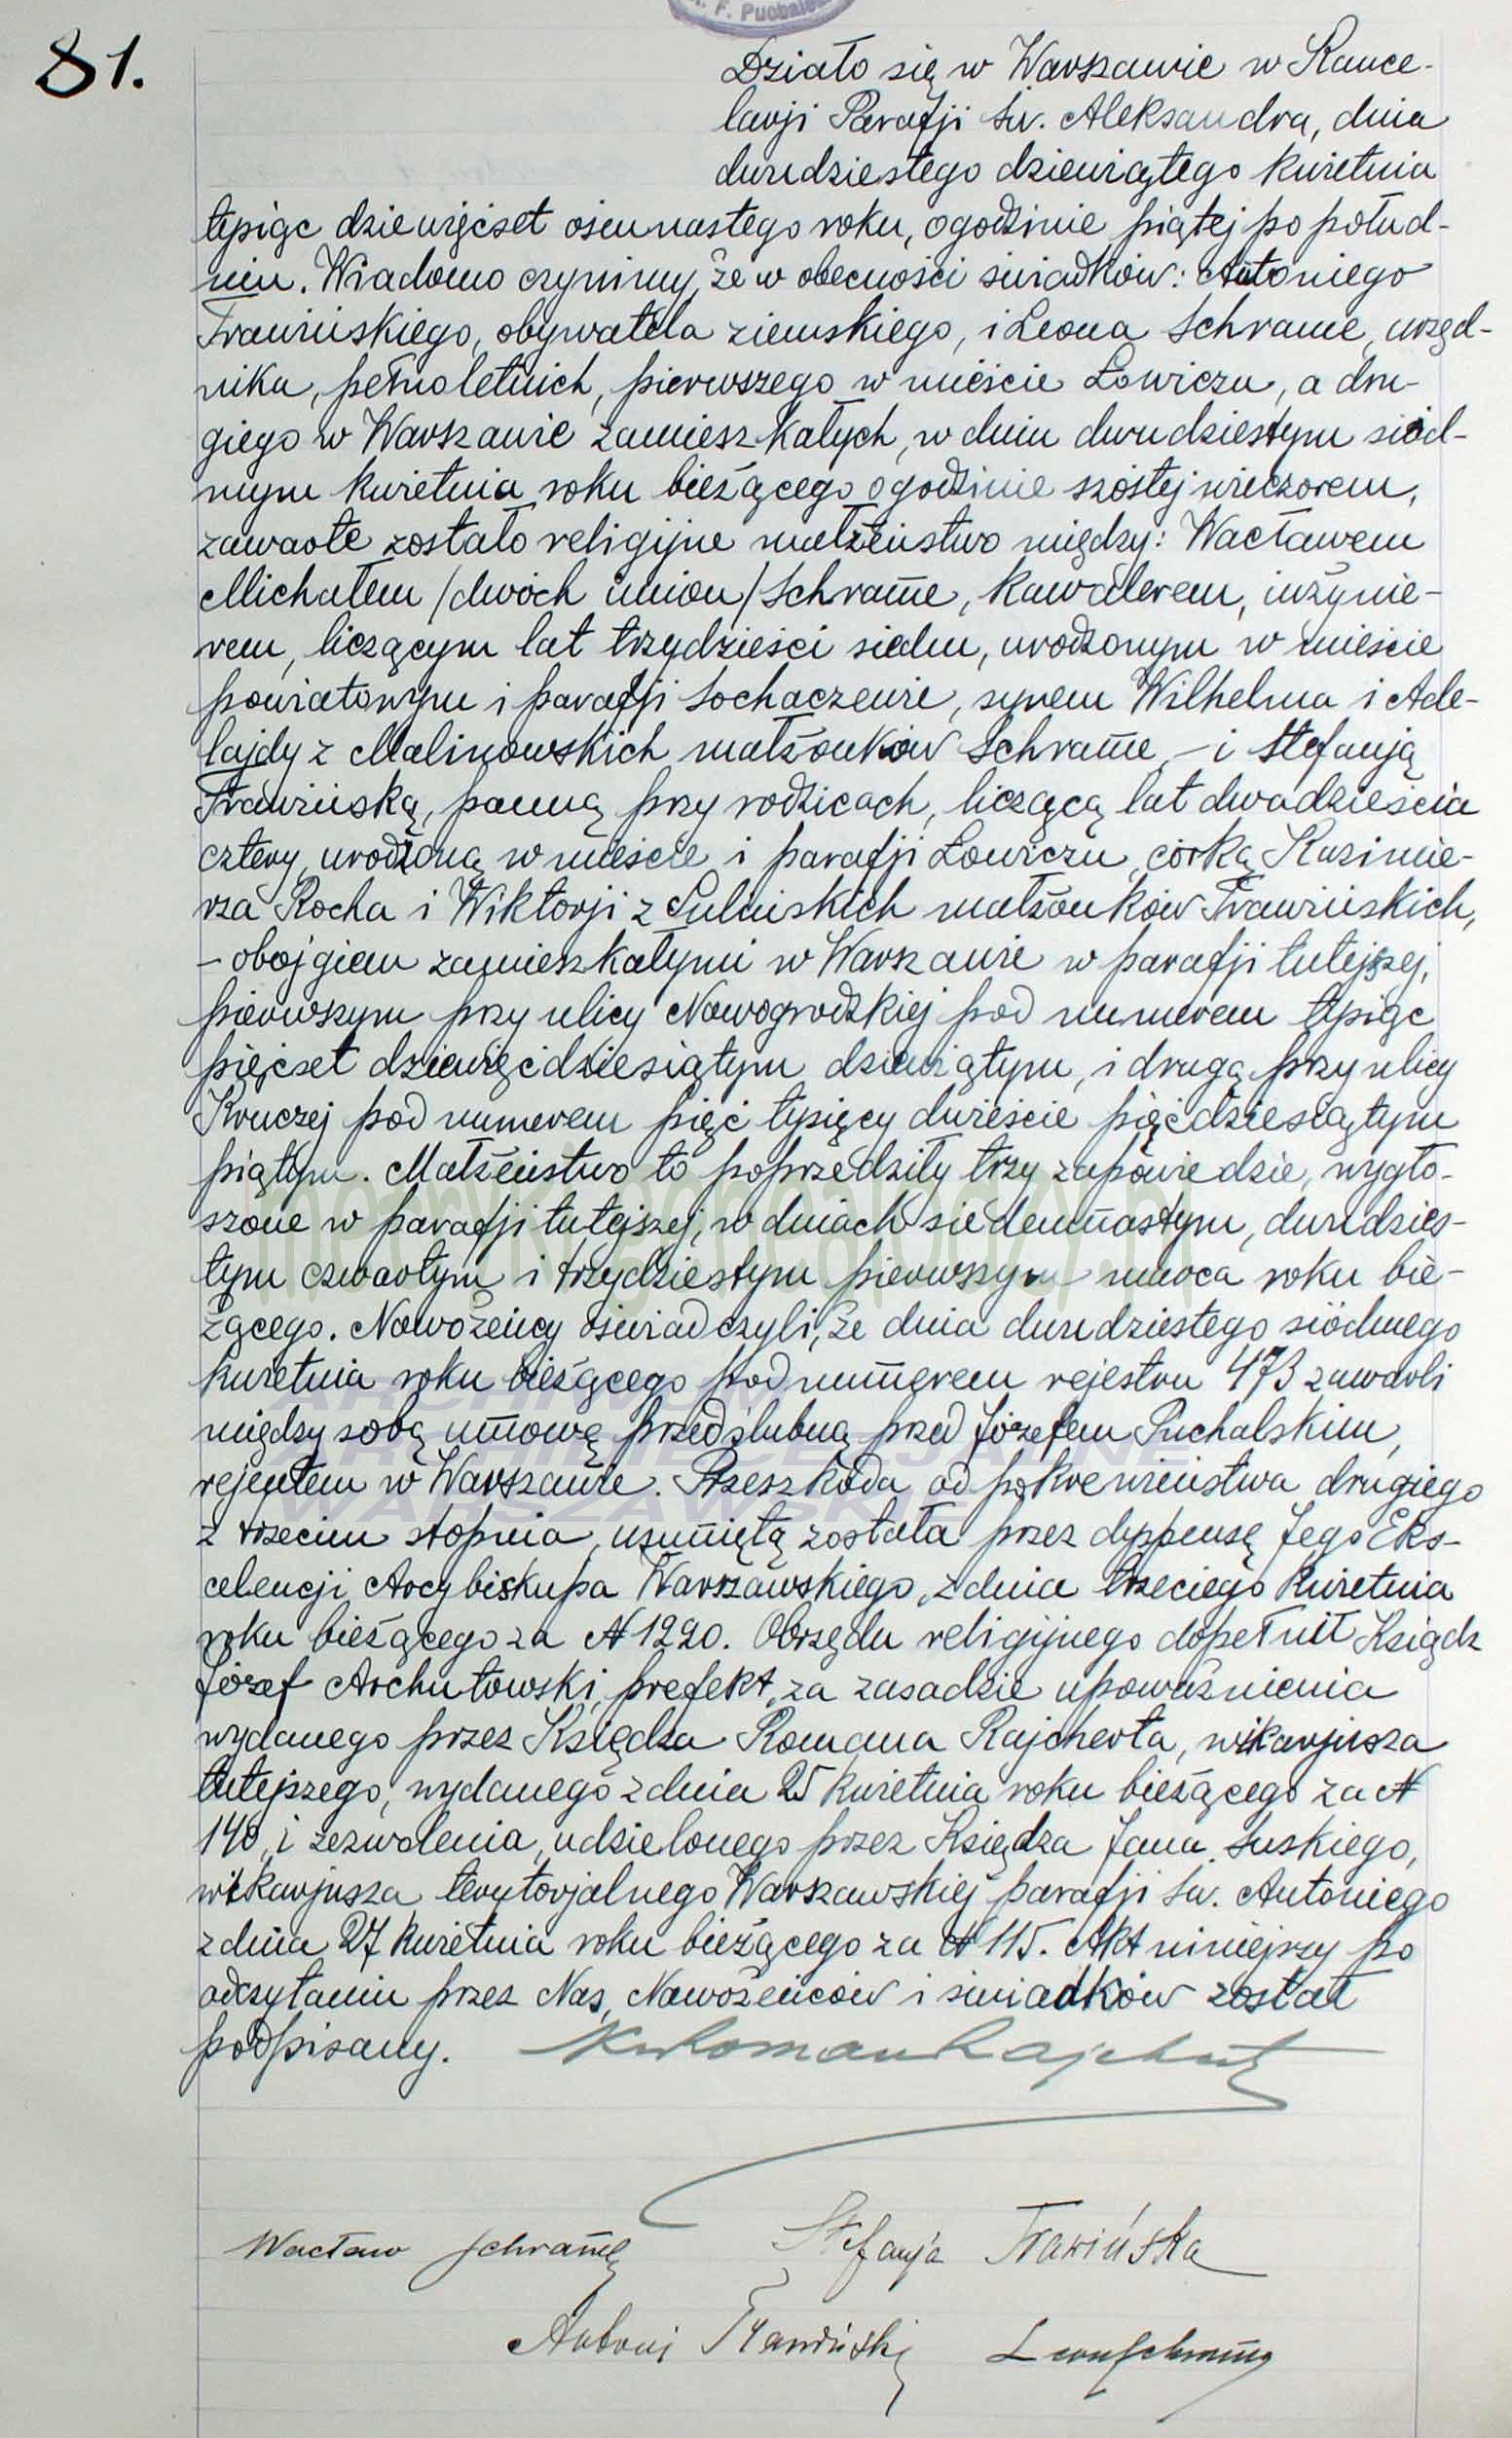 F. Puchalski
81.
Działo się w Warszawie w Kance-
larji Parafji św. Aleksandra, dnia
dwudziestego dziewiątego kwietnia
tysiąc dziewięćset osiemnastego roku, o godzinie piątej po połud-
niu. Wiadomo czynimy, że w obecności świadków: Antoniego
Trawińskiego, obywatela ziemskiego, i Leona Schramme, urzęd-
nika, pełnoletnich, pierwszego w mieście Łowiczu, a dru-
giego w Warszawie zamieszkałych, w dniu dwudziestym siód-
mym kwietnia roku bieżącego o godzinie szóstej wieczorem,
zawarte zostało religijne małżeństwo między: Wacławem
Michałem /dwóch imion/ Schramme, kawalerem, inżynie-
rem, liczącym lat trzydzieści siedm, urodzonym w mieście
powiatowym i parafji Sochaczewie, synem Wilhelma i Ade-
lajdy z Malinowskich małżonków Schramme, – i Stefanją
Trawińską, panną przy rodzicach, liczącą lat dwadzieścia
cztery, urodzoną w mieście i parafji Łowiczu, córką Kazimie-
rza Rocha i Wiktorji z Sulińskich małżonków Trawińskich,
– obojgiem zamieszkałymi w Warszawie w parafji tutejszej,
pierwszym przy ulicy Nowogrodzkiej pod numerem tysiąc
pięćset dziewięćdziesiątym dziewiątym, i drugą przy ulicy
Kruczej pod numerem pięć tysięcy dwieście pięćdziesiątym
piątym. Małżeństwo to poprzedziły trzy zapowiedzie, wygło-
szone w parafji tutejszej, w dniach siedemnastym, dwudzies-
tym czwartym i trzydziestym pierwszym marca roku bie-
żącego. Nowożeńcy oświadczyli, że dnia dwudziestego siódmego
kwietnia roku bieżącego pod numerem rejestru 473 zawarli
między sobą umowę przedślubną przed Józefem Puchalskim,
rejentem w Warszawie. Przeszkoda od pokrewieństwa drugiego
z trzecim stopnia, usuniętą została przez dyspensę Jego Eks-
celencji Arcybiskupa Warszawskiego, z dnia trzeciego kwietnia
roku bieżącego za N 1220. Obrzędu religijnego dopełnił Ksiądz
Józef Archutowski, prefekt, za zasadzie upoważnienia
wydanego przez Księdza Romana Rajcherta, wikarjusza
tutejszego, wydanego z dnia 25 kwietnia roku bieżącego za N
140, i zezwolenia, udzielonego przez Księdza Jana Suskiego,
wikarjusza terytorjalnego Warszawskiej parafji św. Antoniego
z dnia 27 kwietnia roku bieżącego za N 115. Akt niniejszy po
odczytaniu przez Nas, Nowożeńców i świadków został
podpisany. Ks Roman Rajchert
Wacław Schramme Stefanja Trawińska
Antoni Trawiński Leon Schramme
metryki.genealodzy.pl
ARCHIWUM
ARCHIDIECEZJALNE
WARSZAWSKIE